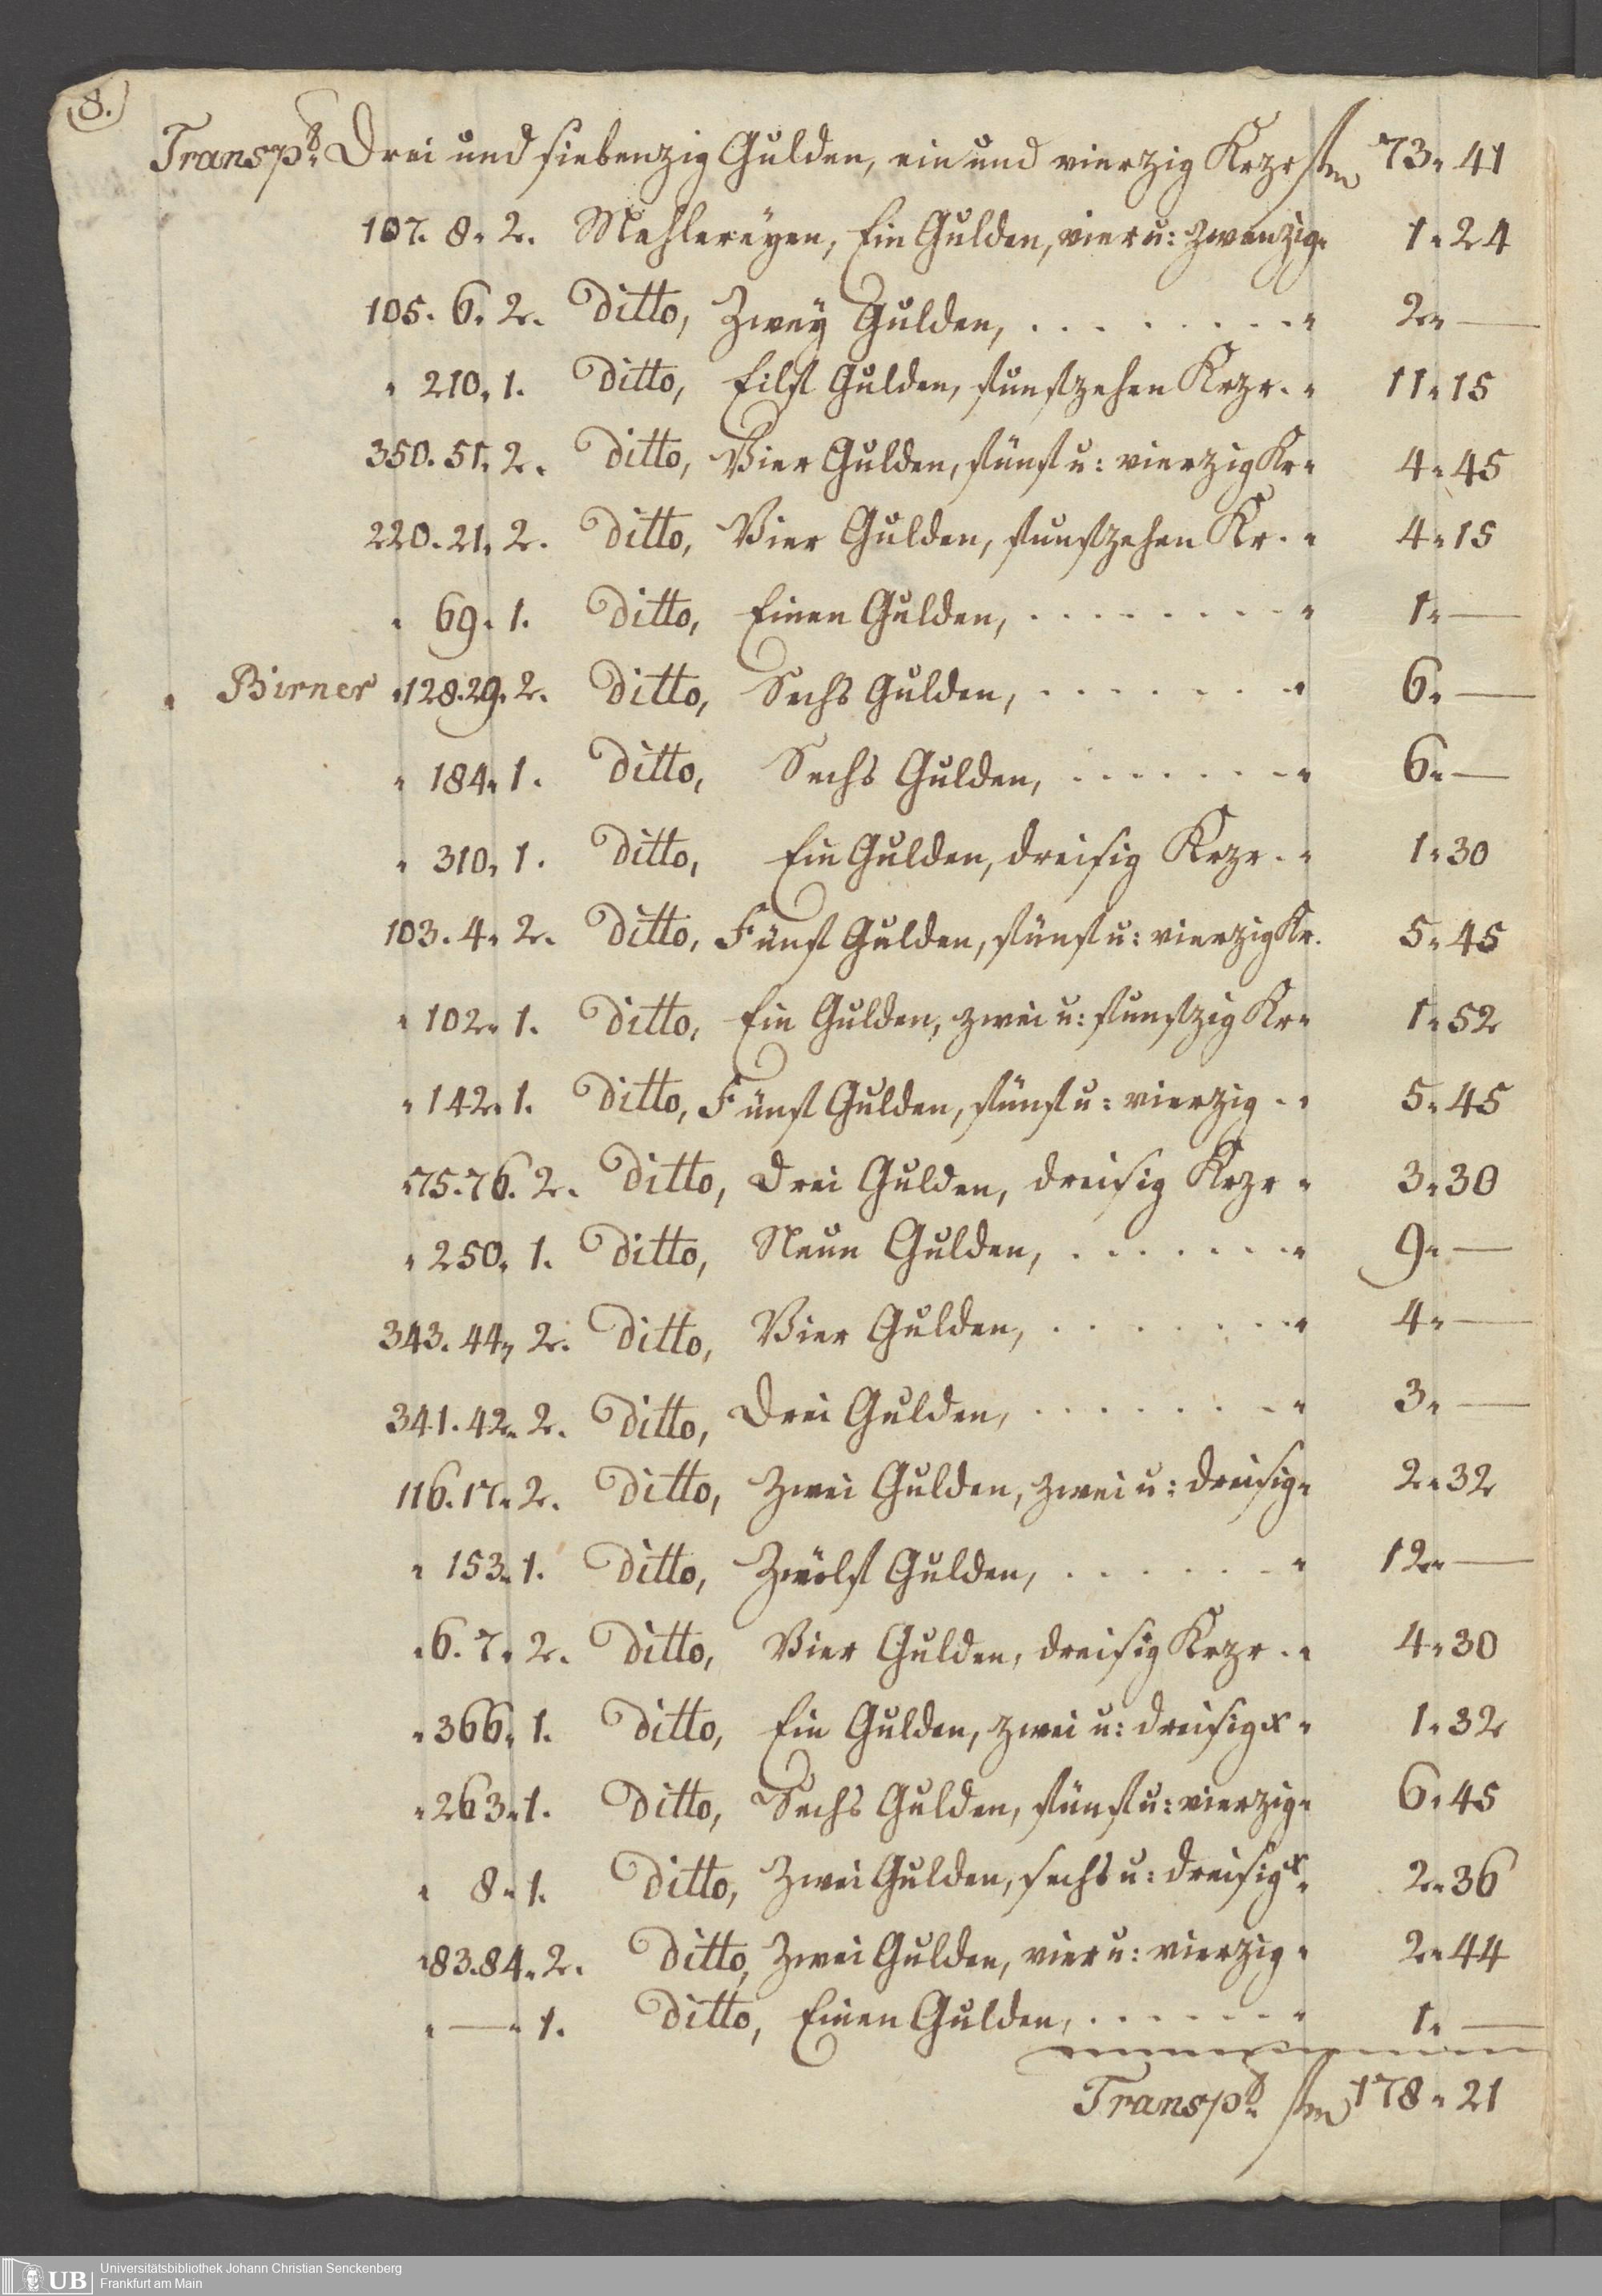 8.
Transp. Drei und siebenzig Gulden, ein und vierzig Krzr 73 " 41
107. 8 " 2. Mahlereyen, Ein Gulden, vier u: zwanzig " 1 " 24
105. 6. 2. Ditto, Zwey Gulden, . . . . . . . . " 2 " —
" 210 " 1. Ditto, Eilf Gulden, funfzehen Krzr. " 11 " 15
350. 51 " 2. Ditto, Vier Gulden, fünf u: vierzig Kr " 4 " 45
220. 21 " 2. Ditto, Vier Gulden, funfzehen Kr. " 4 " 15
" 69 " 1. Ditto, Einen Gulden, . . . . . . . . " 1 " —
" Birner " 128. 29 " 2. Ditto, Sechs Gulden, . . . . . . . " 6 " —
" 184 " 1. Ditto, Sechs Gulden, . . . . . . . " 6 " —
" 310 " 1. Ditto, Ein Gulden, dreisig Krzr. " 1 " 30
103. 4 " 2. Ditto, Fünf Gulden, fünf u: vierzig Kr. 5 " 45
" 102 " 1. Ditto, Ein Gulden, zwei u: funfzig Kr " 1 " 52
" 142 " 1. Ditto, Fünf Gulden, fünf u: vierzig . " 5 " 45
" 75. 76. 2. Ditto, Drei Gulden, dreisig Krzr " 3 " 30
" 250 " 1. Ditto, Neun Gulden, . . . . . . . " 9 " —
343. 44 " 2. Ditto, Vier Gulden, . . . . . . . " 4 " —
341. 42 " 2. Ditto, Drei Gulden, . . . . . . . . " 3 " —
116. 17 " 2. Ditto, Zwei Gulden, zwei u: dreisig " 2 " 32
" 153 " 1. Ditto, Zwölf Gulden, . . . . . . " 12 " —
" 6. 7 " 2. Ditto, Vier Gulden, dreisig Krzr. " 4 " 30
" 366 " 1. Ditto, Ein Gulden, zwei u: dreisig x " 1 " 32
" 263 " 1. Ditto, Sechs Gulden, fünf u: vierzig " 6 " 45
" 8 " 1. Ditto, Zwei Gulden, sechs u: dreisig x " 2 " 36
" 83. 84 " 2. Ditto, Zwei Gulden, vier u: vierzig " 2 " 44
" — " 1. Ditto, Einen Gulden, . . . . . . " 1 " —
Transp. 178 " 21
UB Universitätsbibliothek Johann Christian Senckenberg
Frankfurt am Main